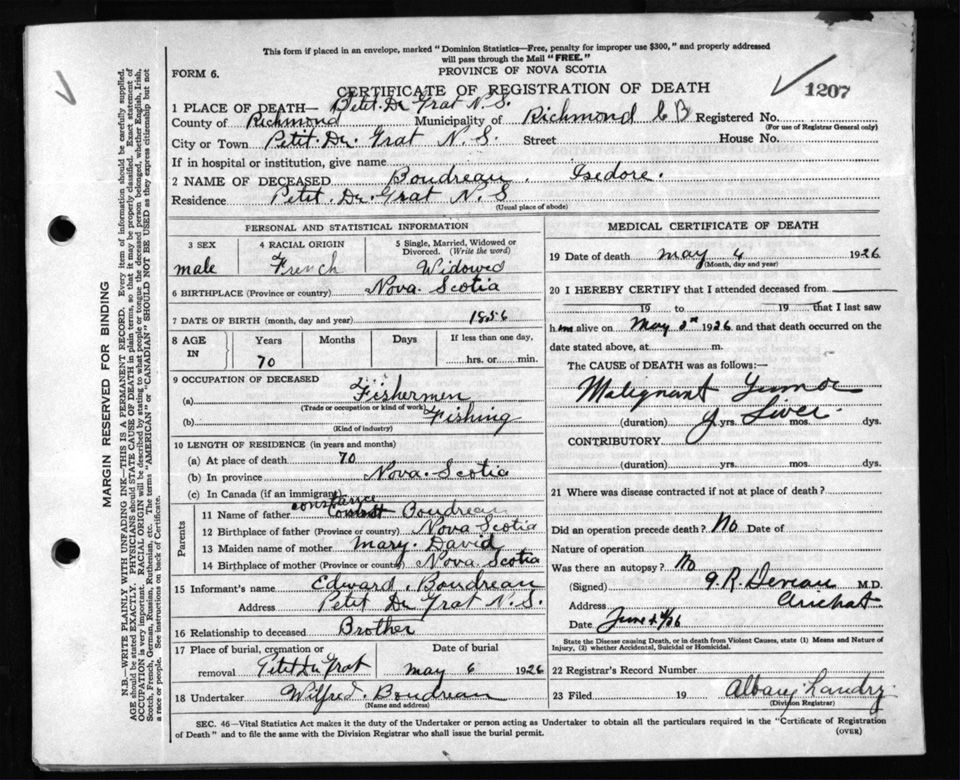 This form if placed in an envelope, marked "Dominion Statistics—Free, penalty for improper use $300," and properly addressed
will pass through the Mail "FREE."
FORM 6.
PROVINCE OF NOVA SCOTIA
CERTIFICATE OF REGISTRATION OF DEATH
1207
1 PLACE OF DEATH— Petit. Du Grat N.S.
County of Richmond Municipality of Richmond C B Registered No.
(For use of Registrar General only)
City or Town Petit. Du. Grat N. S. Street House No.
If in hospital or institution, give name
2 NAME OF DECEASED Boudreau. Isedore.
Residence Petit. Du. Grat N. S
(Usual place of abode)
PERSONAL AND STATISTICAL INFORMATION
3 SEX 4 RACIAL ORIGIN 5 Single, Married, Widowed or
Divorced. (Write the word)
male French Widowed
6 BIRTHPLACE (Province or country) Nova. Scotia
7 DATE OF BIRTH (month, day and year) 1856
8 AGE IN Years Months Days If less than one day,
70 hrs. or min.
9 OCCUPATION OF DECEASED
(a) Fishermen
(Trade or occupation or kind of work)
(b) Fishing
(Kind of industry)
10 LENGTH OF RESIDENCE (in years and months)
(a) At place of death 70
(b) In province Nova. Scotia
(c) In Canada (if an immigrant)
Parents
constance
11 Name of father Boudreau
12 Birthplace of father (Province or country) Nova Scotia
13 Maiden name of mother Mary. David
14 Birthplace of mother (Province or country) Nova Scotia
15 Informant's name Edward. Boudreau
Address Petit Du Grat N.S.
16 Relationship to deceased Brother
17 Place of burial, cremation or Date of burial
removal Petit Du Grat May 6 1926
18 Undertaker Wilfred. Boudreau
(Name and address)
MEDICAL CERTIFICATE OF DEATH
19 Date of death May 4 1926
(Month, day and year)
20 I HEREBY CERTIFY that I attended deceased from
19 to 19 that I last saw
him alive on May 1926 and that death occurred on the
date stated above, at m.
The CAUSE OF DEATH was as follows:—
Malignant Tumor
(duration) of yrs. Liver mos. dys.
CONTRIBUTORY
(duration) yrs. mos. dys.
21 Where was disease contracted if not at place of death?
Did an operation precede death? No Date of
Nature of operation
Was there an autopsy? No
(Signed) M.D.
Address Arichat
Date June
State the Disease causing Death, or in death from Violent Causes, state (1) Means and Nature of
Injury, (2) whether Accidental, Suicidal or Homicidal.
22 Registrar's Record Number
23 Filed 19 Albany Landry
(Division Registrar)
SEC. 46—Vital Statistics Act makes it the duty of the Undertaker or person acting as Undertaker to obtain all the particulars required in the "Certificate of Registration
of Death" and to file the same with the Division Registrar who shall issue the burial permit.
(OVER)
MARGIN RESERVED FOR BINDING
N.B.—WRITE PLAINLY WITH UNFADING INK—THIS IS A PERMANENT RECORD. Every item of information should be carefully supplied.
AGE should be stated EXACTLY. PHYSICIANS should STATE CAUSE OF DEATH in plain terms, so that it may be properly classified. Exact statement of
OCCUPATION is very important. RACIAL ORIGIN will be described by stating to what people or tongue the deceased person belonged, whether English, Irish,
Scotch, French, German, Russian, Ruthenian, etc. The terms "AMERICAN" or "CANADIAN" SHOULD NOT BE USED as they express citizenship but not
a race or people. See instructions on back of Certificate.